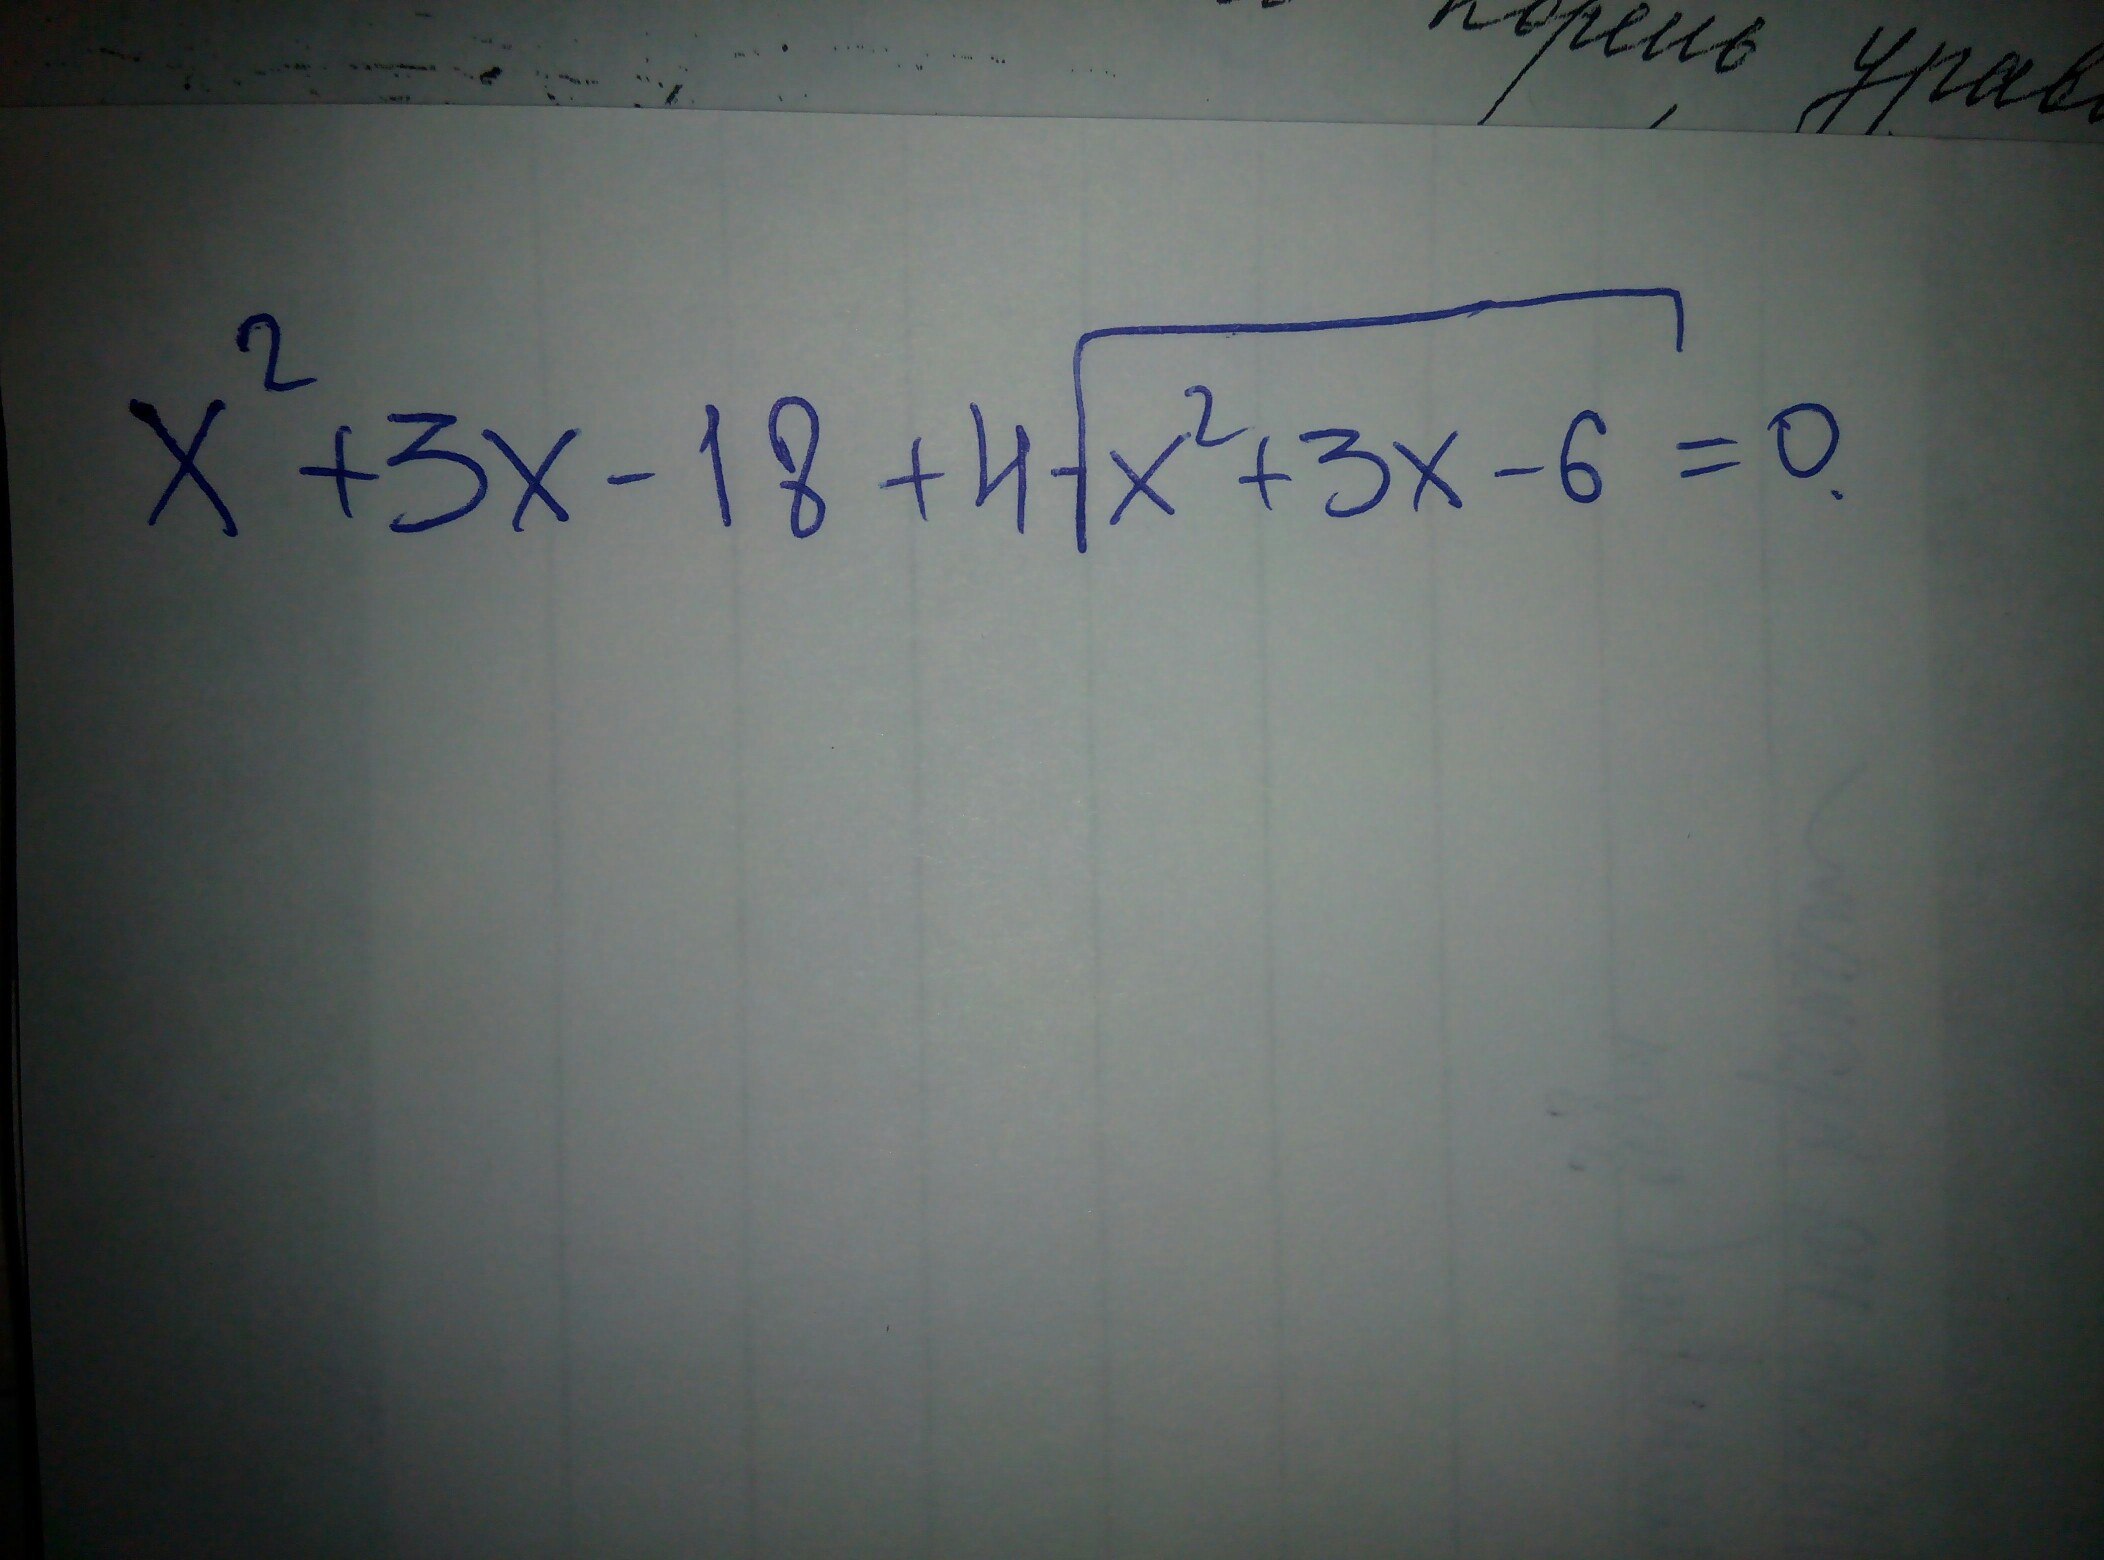 корень урав
x²+3x-18+4√x²+3x-6=0.